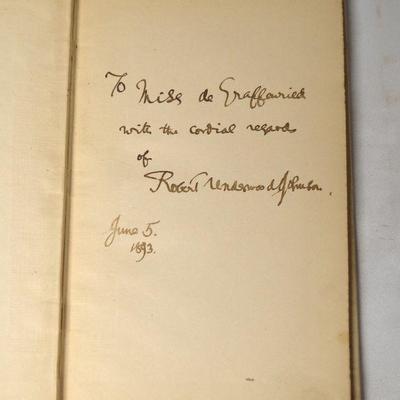 To Miss de Graffenried
with the cordial regards
of
Robert Underwood Johnson.
June 5.
1893.